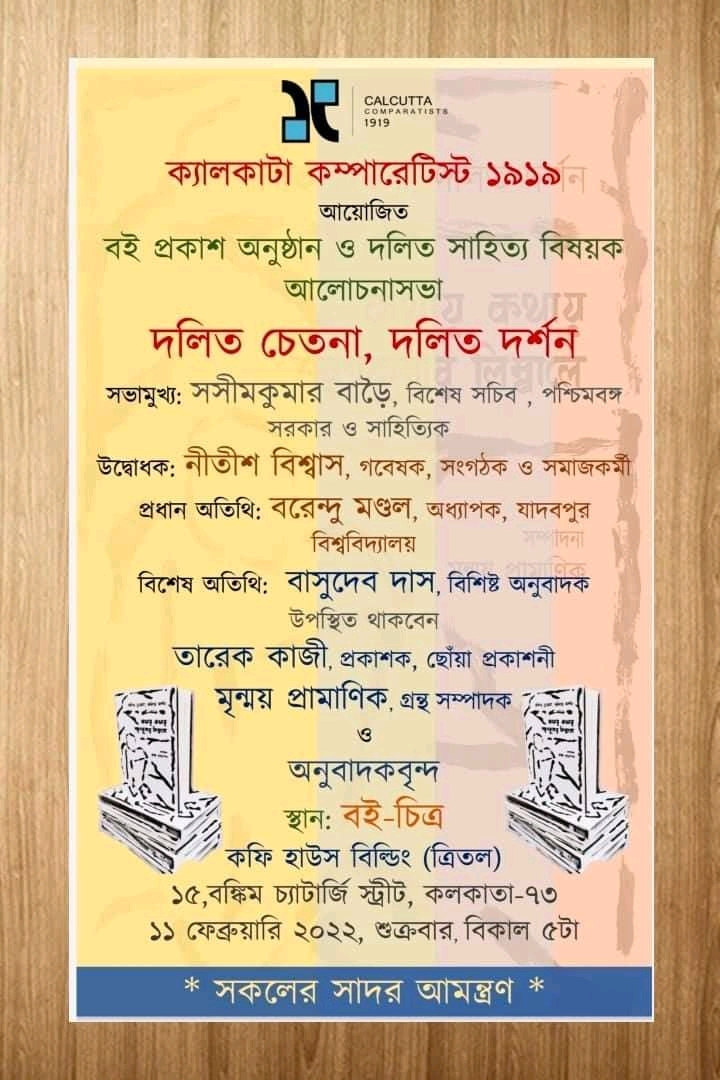 CALCUTTA
COMPARATISTS
1919
ক্যালকাটা কম্পারেটিস্ট ১৯১৯
আয়োজিত
বই প্রকাশ অনুষ্ঠান ও দলিত সাহিত্য বিষয়ক
আলোচনাসভা
দলিত চেতনা, দলিত দর্শন
সভামুখ্য: সসীমকুমার বাড়ৈ, বিশেষ সচিব , পশ্চিমবঙ্গ
সরকার ও সাহিত্যিক
উদ্বোধক: নীতীশ বিশ্বাস, গবেষক, সংগঠক ও সমাজকর্মী
প্রধান অতিথি: বরেন্দু মণ্ডল, অধ্যাপক, যাদবপুর
বিশ্ববিদ্যালয়
সম্পাদনা
মৃন্ময় প্রামাণিক
বিশেষ অতিথি: বাসুদেব দাস, বিশিষ্ট অনুবাদক
উপস্থিত থাকবেন
তারেক কাজী, প্রকাশক, ছোঁয়া প্রকাশনী
মৃন্ময় প্রামাণিক, গ্রন্থ সম্পাদক
ও
অনুবাদকবৃন্দ
স্থান: বই-চিত্র
কফি হাউস বিল্ডিং (ত্রিতল)
১৫,বঙ্কিম চ্যাটার্জি স্ট্রীট, কলকাতা-৭৩
১১ ফেব্রুয়ারি ২০২২, শুক্রবার, বিকাল ৫টা
* সকলের সাদর আমন্ত্রণ *